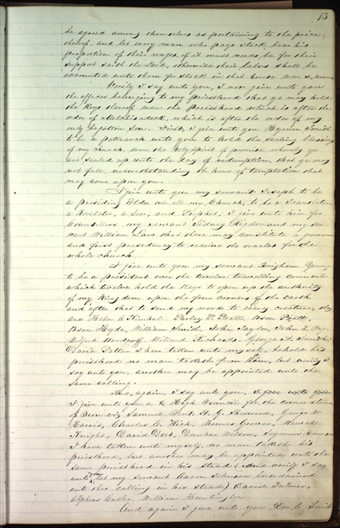 13
be agreed among themselves as pertaining to the price
thereof, and let every man who pays stock, bear his
proportion of their wages, if it must needs be for their
support saith the Lord, otherwise their labors shall be
accounted unto them for stock in that house even so, Amen
Verily I say unto you, I now give unto you
the officers belonging to my Priesthood that ye may hold
the Keys thereof even the Priesthood which is after the
order of Melchisadeck, which is after the order of my
only begotten Son. First, I give unto you Hyrum Smith
to be a patriarch unto you to hold the sealing blessings
of my church, even the Holy Spirit of promise, whereby ye
are sealed up unto the day of redemption, that ye may
not fall, notwithstanding the hour of temptation that
may come upon you.
I give unto you my servant Joseph to be
a presiding Elder over all my Church, to be a Translator,
a Revelator, a Seer, and Prophet, I give unto him for
Councillors my servant Sidney Rigdon and my ser
vant William Law that these may constitute a quorum
and first presidency to receive the oracles for the
whole church.
I give unto you my servant Brigham Young
to be a president over the twelve travelling council
which twelve hold the Keys to open up the authority
of my Kingdom upon the four corners of the earth
and after that to send my word to every creature, they
are Heber C. Kimball, Parley P. Pratt, Orson Pratt,
Orson Hyde, William Smith, John Taylor, John E. Page
Wilford Woodruff, Willard Richards, George A. Smith,
David Patten I have taken unto myself, behold his
priesthood no man taketh from him, but verily I
say unto you, another may be appointed unto the
same calling.
And again, I say unto you,
I give unto you a High Council, for the corner stone
of Zion viz Samuel Bent, H. G. Sherwood, George W.
Harris, Charles C. Rich, Thomas Grover, Newel
Knight, David Dort, Dunbar Wilson,
I have taken unto myself, no man taketh his
priesthood, but another may be appointed unto the
same priesthood in his stead (And verily I say
unto you let my servant Aaron Johnson be ordained
unto this calling in his stead) David Fulmer,
Alpheus Cutler, William Huntington.
And again I give unto you Don C. Smith